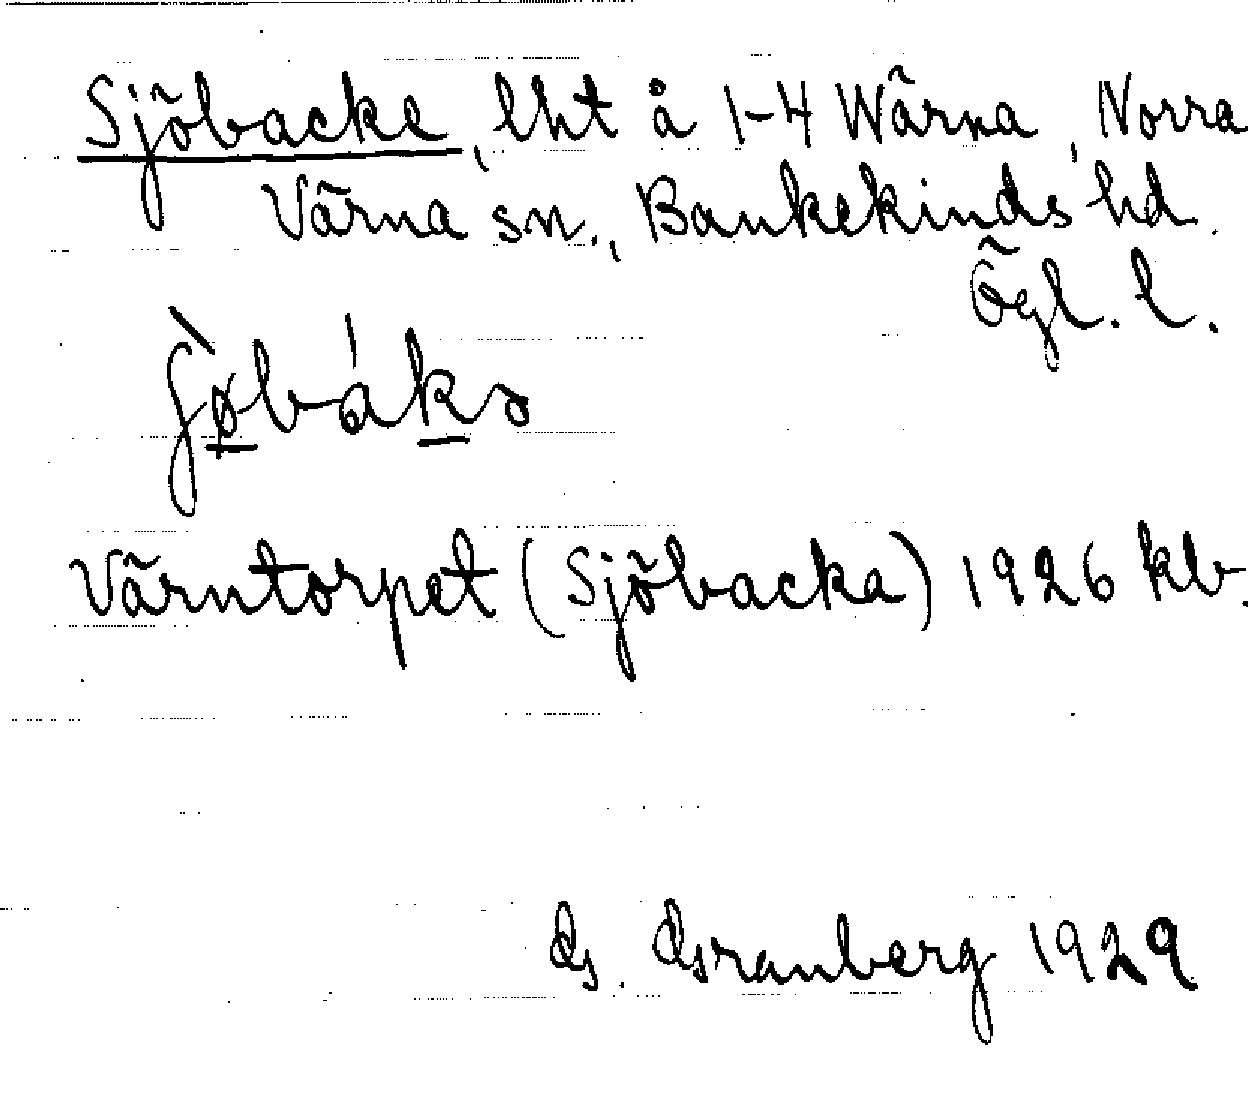 Sjöbacke, lht å 1-4 Wärna, Norra
Värna sn., Bankekinds hd.
Ögl. l.
Värntorpet (Sjöbacka) 1926 kb.
G. Granberg 1929